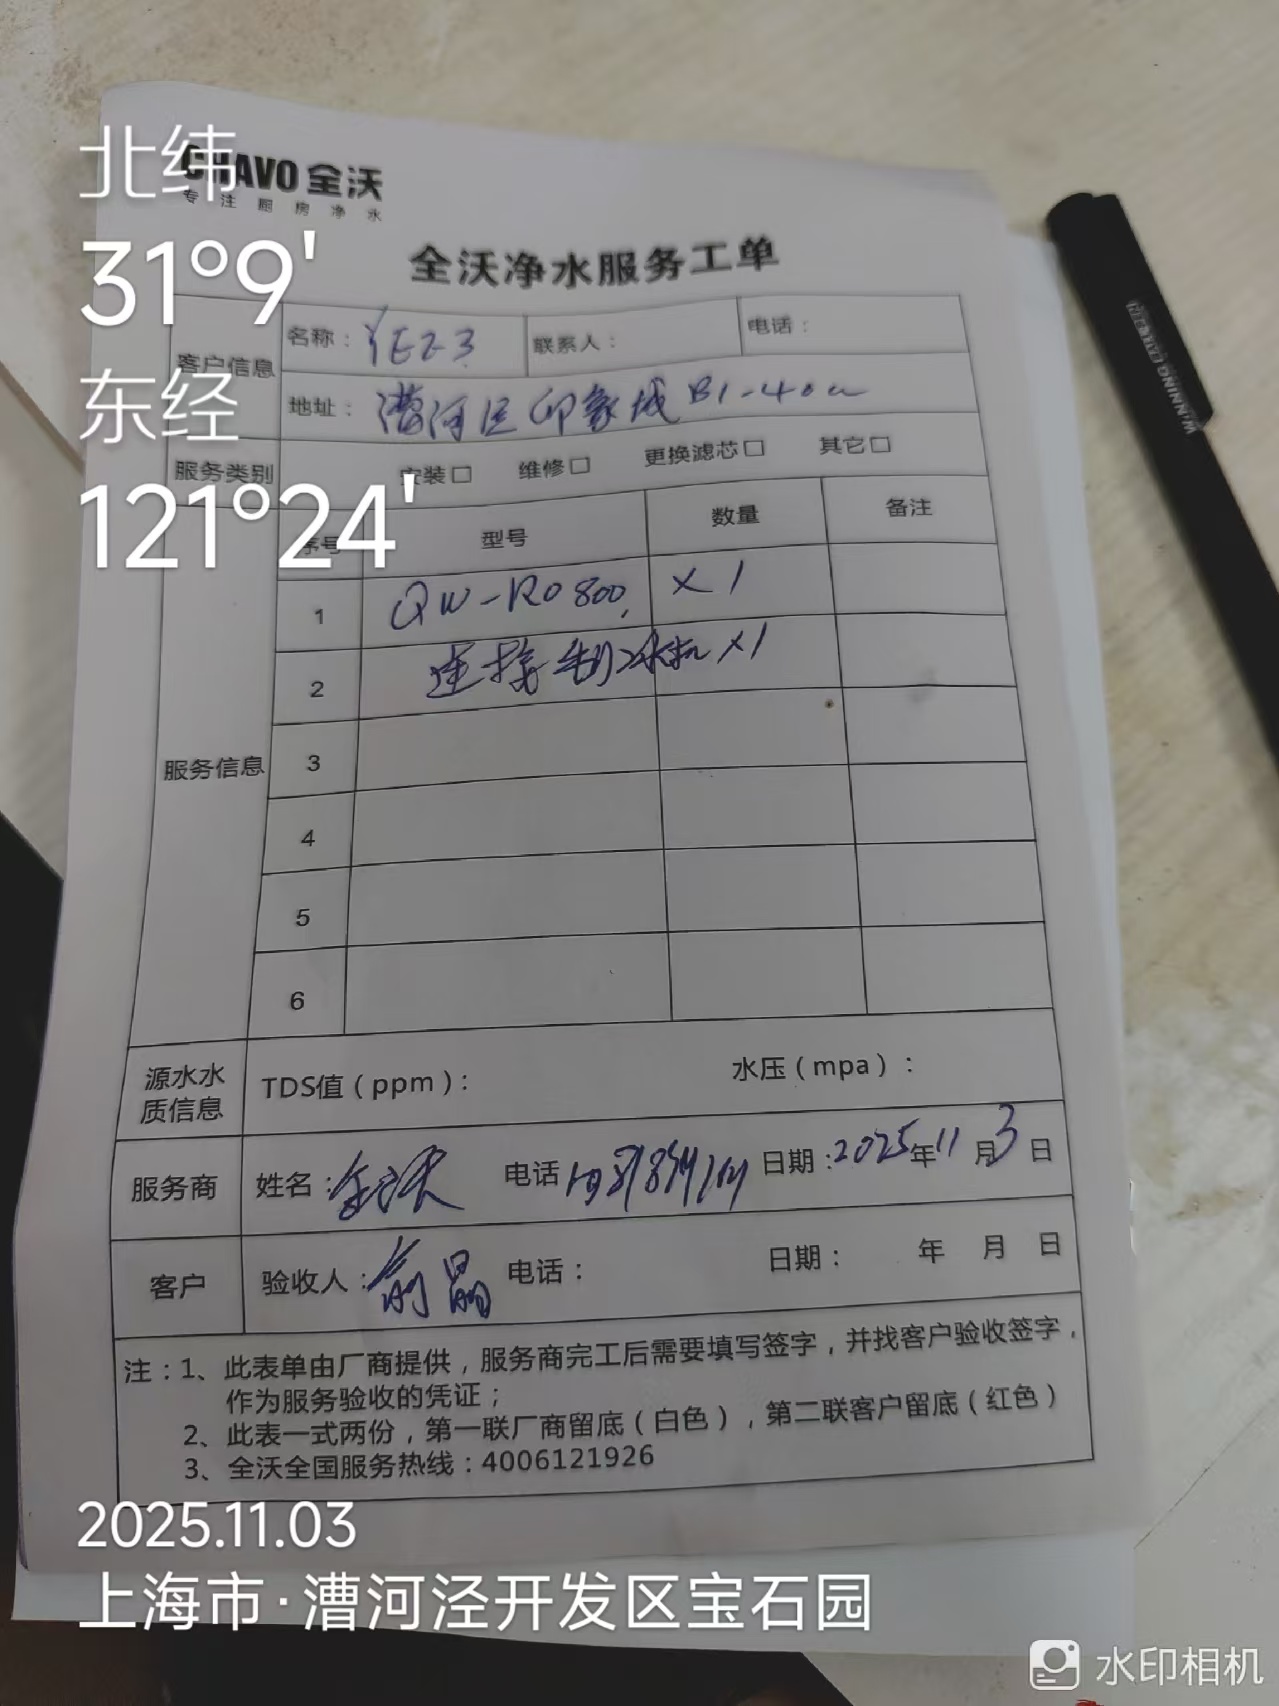 CHAVO 全沃
专注厨房净水
全沃净水服务工单
客户信息
名称：YEZ3
联系人：
电话：
地址：漕河泾印象城 B1-40a
服务类别
安装□ 维修□ 更换滤芯□ 其它□
服务信息
序号 型号 数量 备注
1 QW-RO800, ×1
2 连接制冰机×1
3
4
5
6
源水水质信息
TDS值（ppm）：
水压（mpa）：
服务商
姓名：
电话
日期：2025年11月3日
客户
验收人：俞晶
电话：
日期： 年 月 日
注：1、此表单由厂商提供，服务商完工后需要填写签字，并找客户验收签字，
作为服务验收的凭证；
2、此表一式两份，第一联厂商留底（白色），第二联客户留底（红色）
3、全沃全国服务热线：4006121926
北纬
31°9'
东经
121°24'
2025.11.03
上海市·漕河泾开发区宝石园
水印相机
WINNING